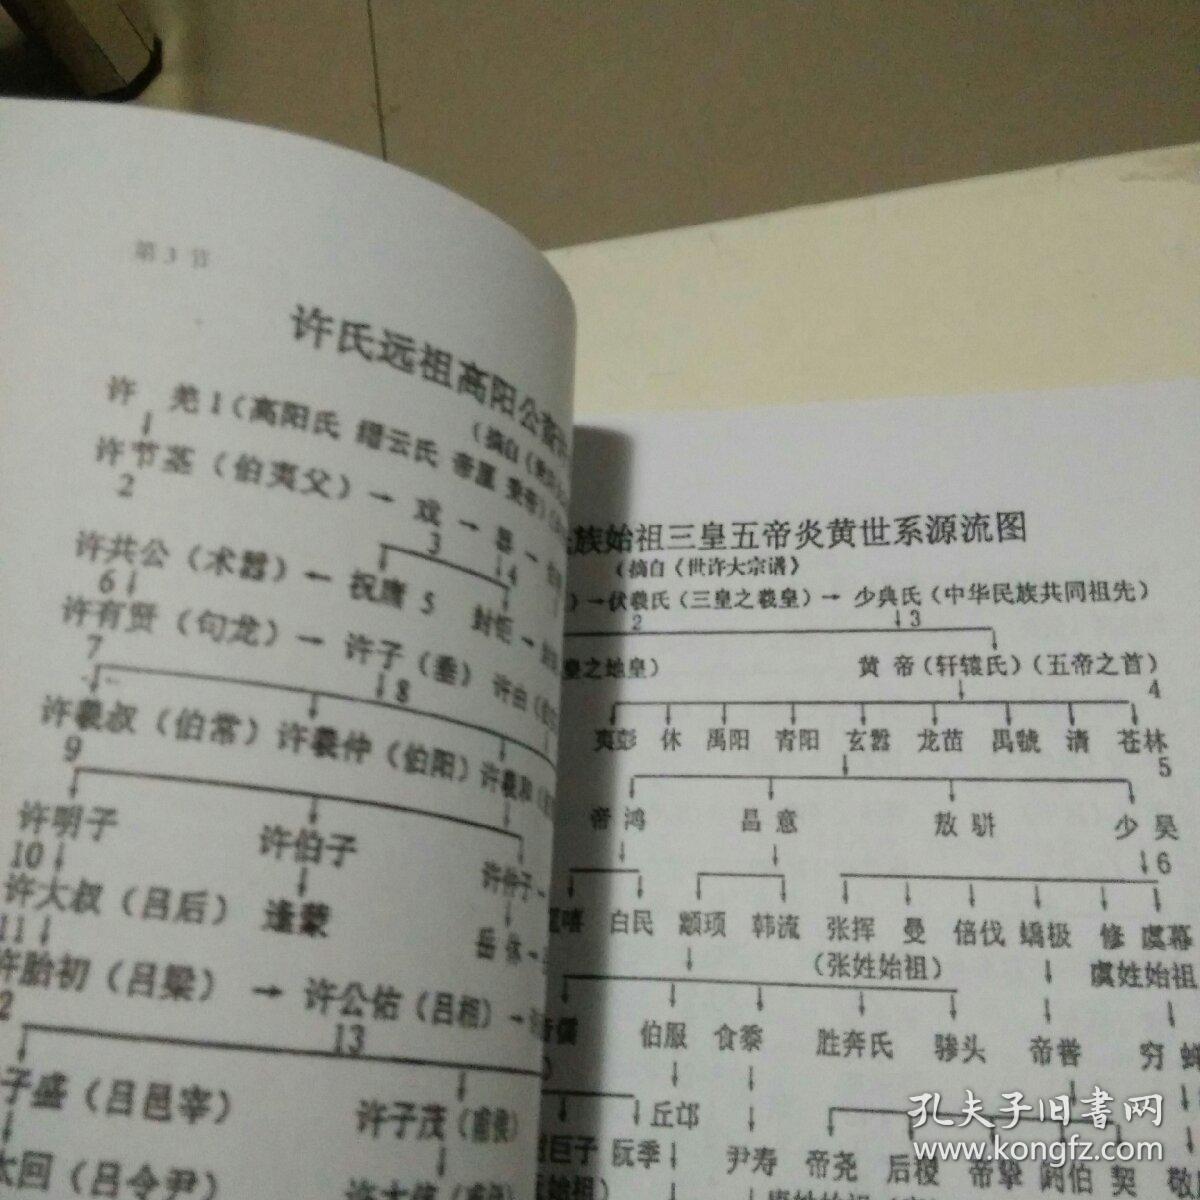 第3节
许氏远祖高阳公
许 羌1（高阳氏 缙云氏 帝厘
（摘自（
许节茎（伯夷父）→ 戏 → 器 →
2 3 4
许共公（术嚣）← 祝庸 5 封钜→
6
许有贤（句龙）→ 许子（垂）许由（
7 8
许羲叔（伯常）许羲仲（伯阳）许羲和（
9
许明子 许伯子 许仲子
10
许大叔（吕后） 逢蒙 岳 休
11
许胎初（吕梁） → 许公佑（吕相）→
2 13
子盛（吕邑宰） 许子茂（甫侯）
太回（吕令尹）
族始祖三皇五帝炎黄世系源流图
（摘自《世许大宗谱》
）→伏羲氏（三皇之羲皇）→ 少典氏（中华民族共同祖先）
2 3
皇之地皇） 黄 帝（轩辕氏）（五帝之首）
4
夷彭 休 禹阳 青阳 玄嚣 龙苗 禺虢 清 苍林
5
帝 鸿 昌 意 敖 骈 少 昊
6
白民 颛顼 韩流 张挥 曼 倍伐 蟜极 修 虞幕
（张姓始祖） 虞姓始祖
伯服 食黍 胜奔氏 骖头 帝喾 穷
丘邙
巨子 阮季 尹寿 帝尧 后稷 帝挚 阏伯 契
孔夫子旧书网
www.kongfz.com